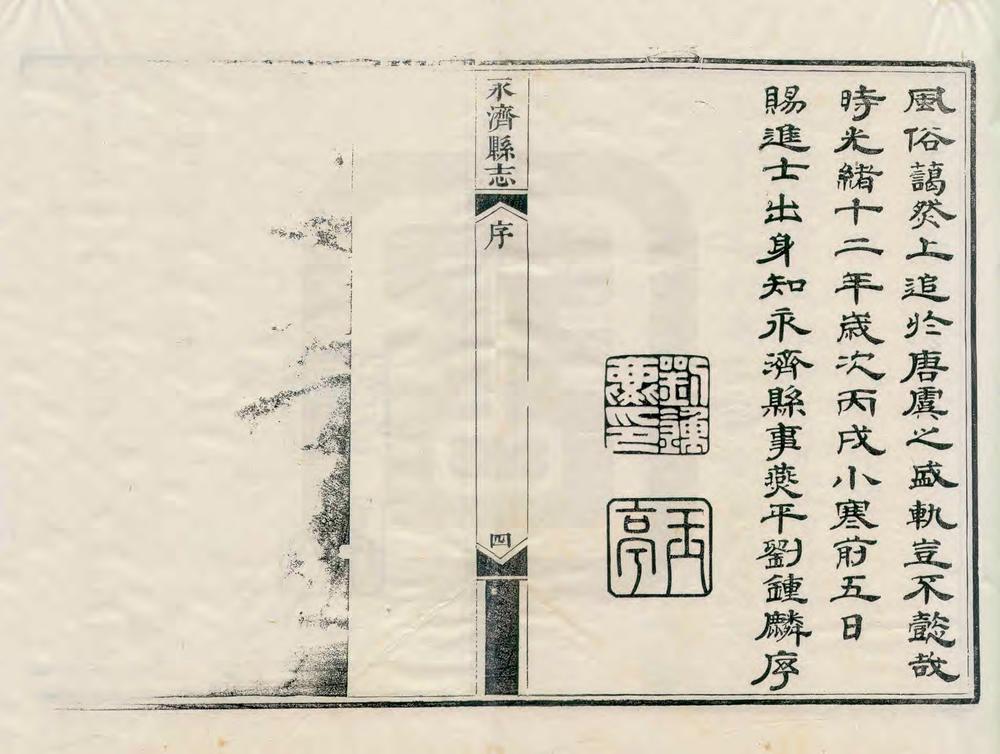 風俗藹然上追於唐虞之盛軌豈不懿哉
時光緒十二年歲次丙戌小寒前五日
賜進士出身知永濟縣事燕平劉鍾麟序
玉亭
永濟縣志
序
四